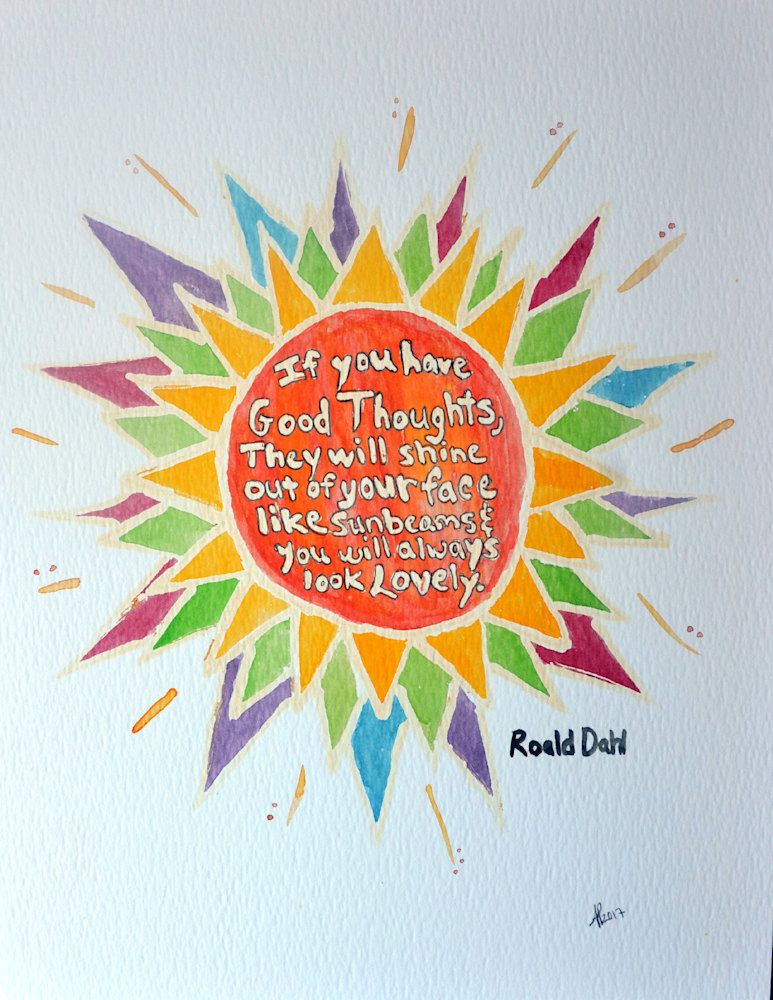 If you have
Good Thoughts,
They will shine
out of your face
like sunbeams &
you will always
look Lovely.
Roald Dahl
2017